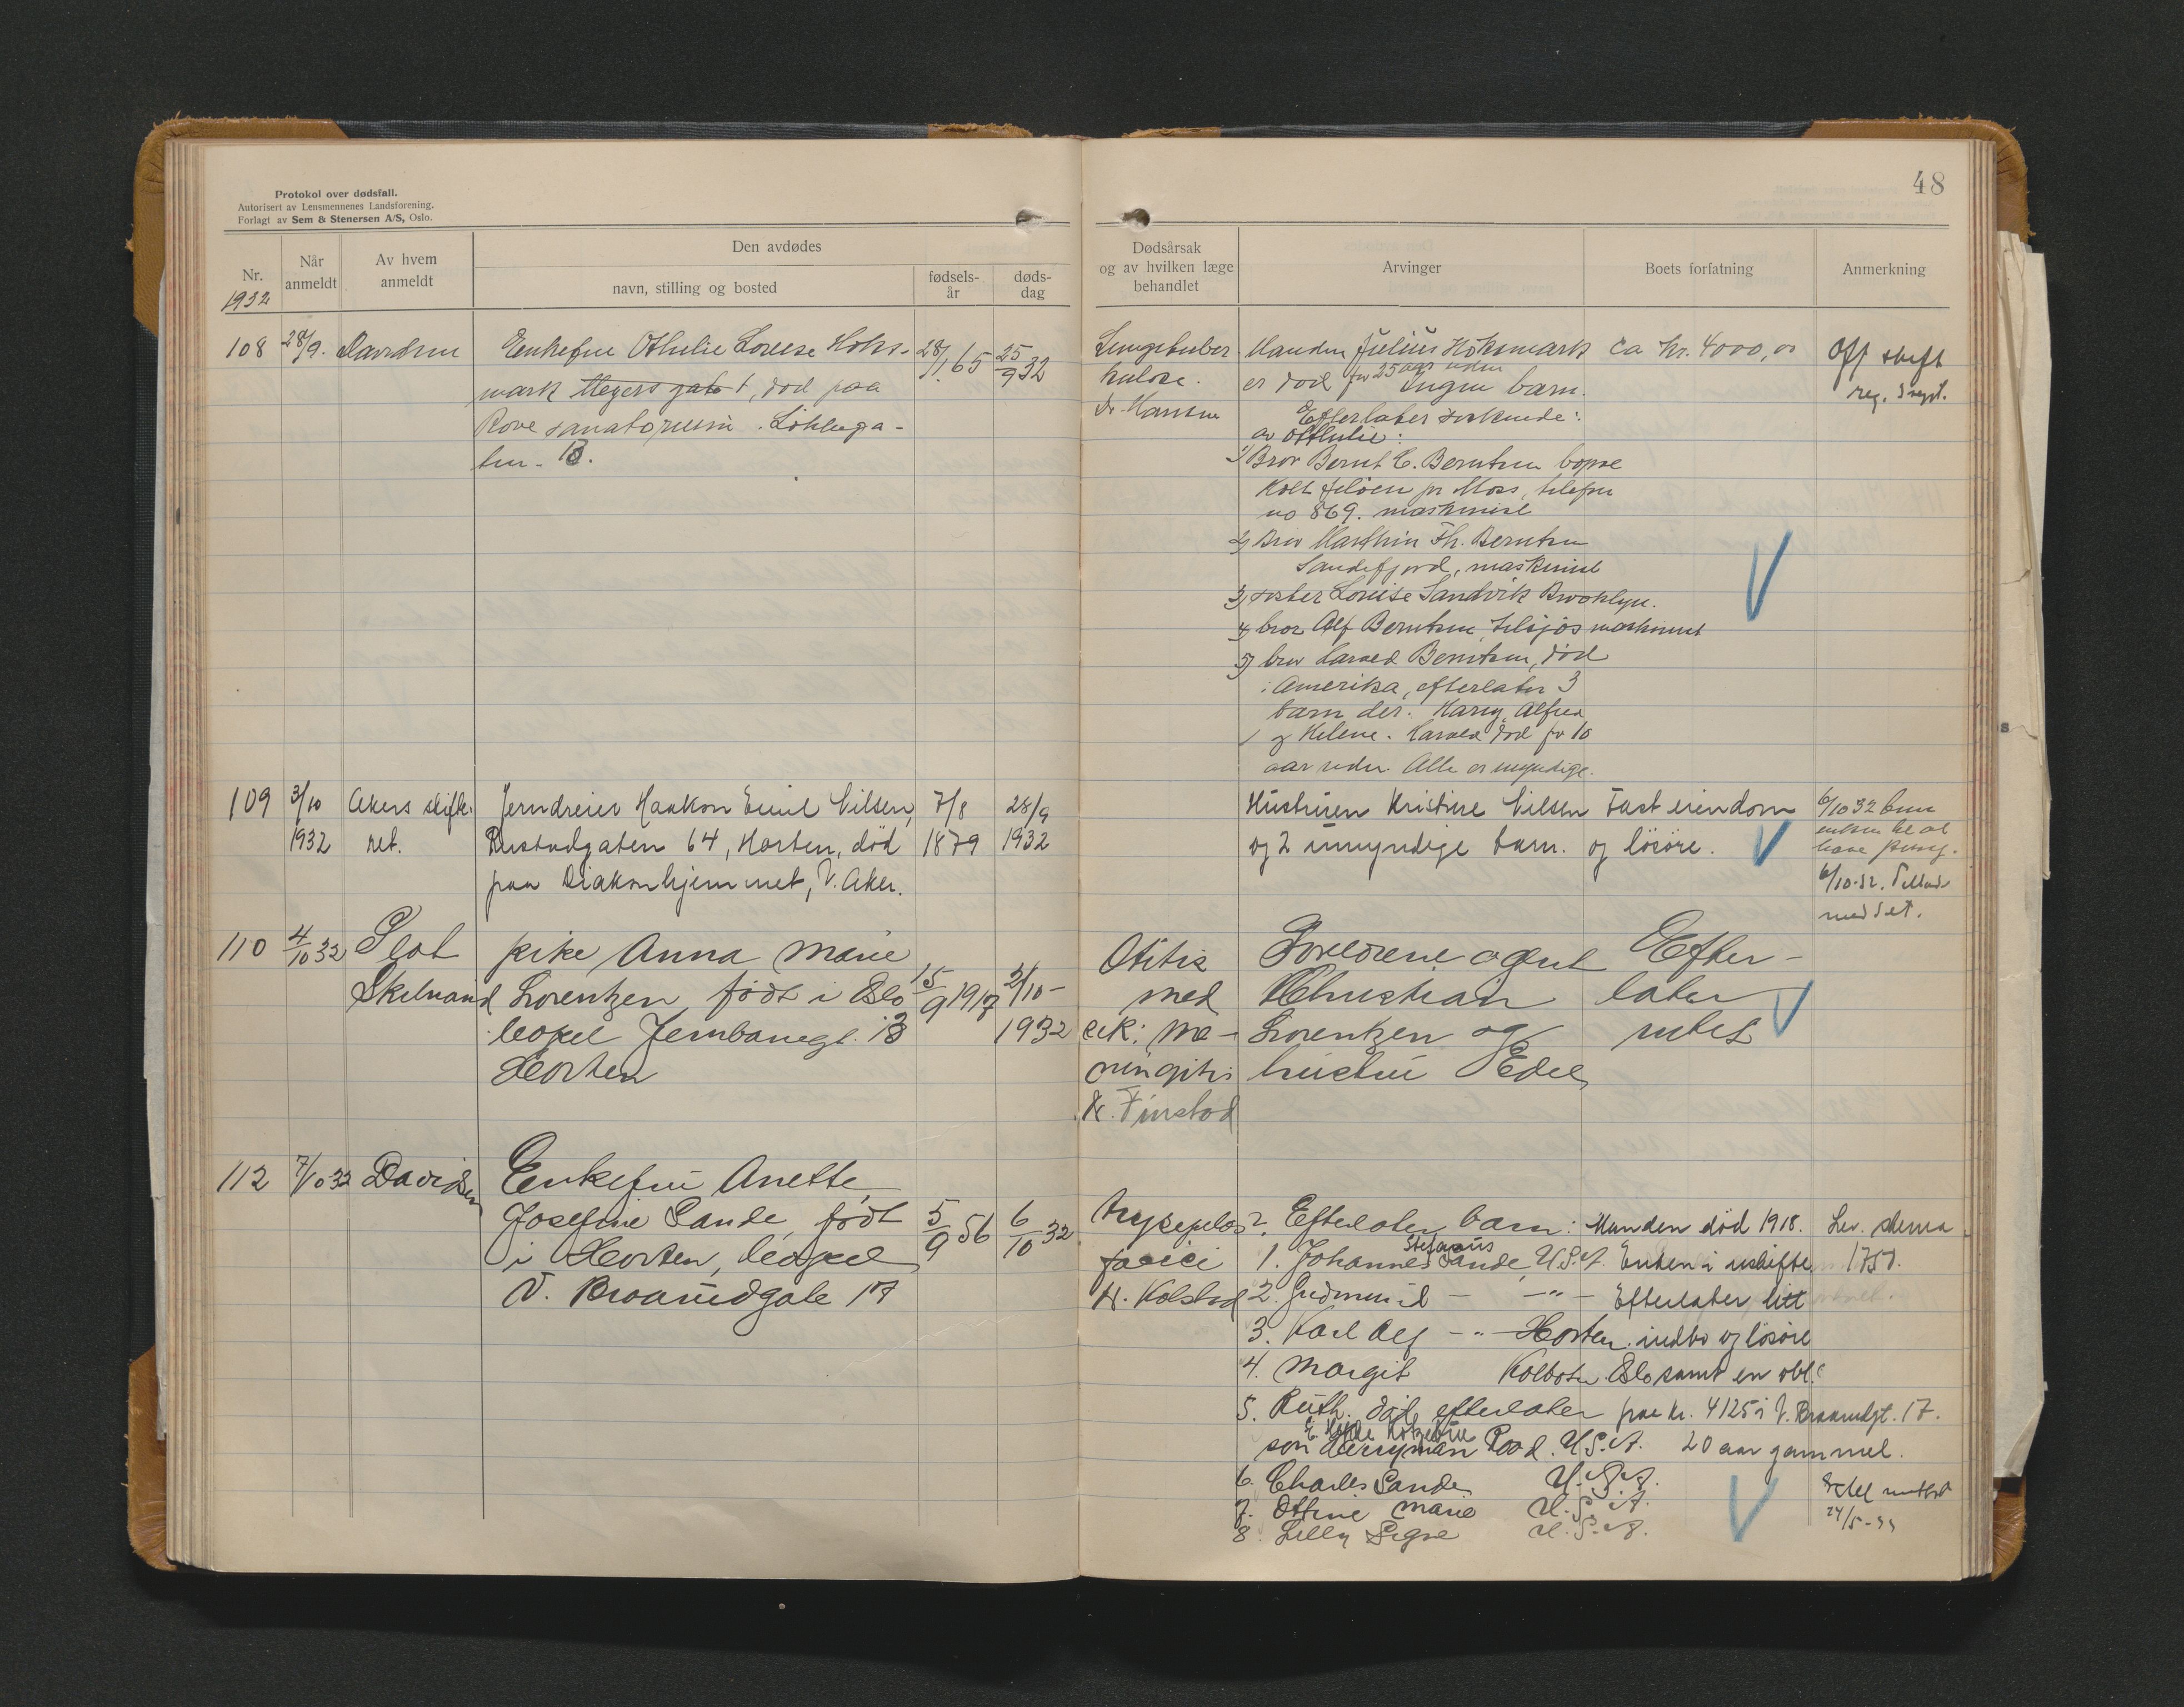 Protokol over dødsfall.
Autorisert av Lensmennenes Landsforening.
Forlagt av Sem & Stenersen A/S, Oslo.
48
Nr.
1932
Når
anmeldt
Av hvem
anmeldt
Den avdødes
navn, stilling og bosted
fødsels-
år
døds-
dag
Dødsårsak
og av hvilken læge
behandlet
Arvinger
Boets forfatning
Anmerkning
108 28/9. Davidsen Enkefru Othilie Lovise Höks- 28/1 65 25/9 32
mark Meyers gate 1, död paa
Rove sanatorium. Löhlega-
ten 13.
Lungetuber
kulose.
Dr. Hansen
Manden Julius Höksmark
er död for 25 aar siden
Ingen barn.
Efterlater söskende:
av Othilie:
1) Bror Bernt C. Berntsen bopæl
Kolt Jelöen pr Moss, telefon
no 869. maskinist
2) Bror Marthin Th. Berntsen
Sandefjord, maskinist
3) söster Louise Sandvik Brooklyn.
4) bror Alf Berntsen, tilsjös maskinist
5) bror Harald Berntsen, död
i Amerika, efterlater 3
barn der. Harry, Alfred
og Helene. Harald död for 10
aar siden Alle er myndige.
Ca kr. 4000,00
Off skift
reg.
109 3/10 1932 Akers skifte-
ret.
Jerndreier Haakon Emil Nilsen,
Rustadgaten 64, Horten, död
paa Diakonhjemmet, V. Aker.
7/8
1879
28/9
1932
Hustruen Kristine Nilsen
og 2 umyndige barn.
Fast eiendom
og lösöre.
6/10 32
6/10-32.
med set.
110 4/10 32 Plat
Skilvand
pike Anna Marie
Lorentzen födt i Oslo
bopæl Jernbanegt. 13
Horten
15/9 1917
2/10-
1932
Otitis
med
sek: me-
ningitis
Dr. Finstad
Foreldrene agent
Christian
Lorentzen og
hustru Edel
Efter-
later
intet
112 7/10 32 Davidsen
Enkefru Anette
Josefine Sande, födt
i Horten, bopæl
V. Braarudgate 17
5/9 56
6/10 32
Erysepelas
faciei
Dr. Kolstad
Efterlater barn:
1. Johannes Stefanus Sande, U.S.A.
2. Gudmund — -"-
3. Karl Alf -"- Horten
4. Margit Kolbotn Oslo
5. Ruth. död, efterlater
son Merryman Rood. U.S.A. 20 aar gammel.
6. Charles Sande U.S.A.
7. Othine Marie U.S.A.
8. Lilly Signe U.S.A.
Manden död 1918.
Enken i uskifte
Efterlater litt
indbo og lösöre
samt en obl.
paa kr. 4125 i V. Braarudgt. 17.
Lev. skema
1751.
24/5-33